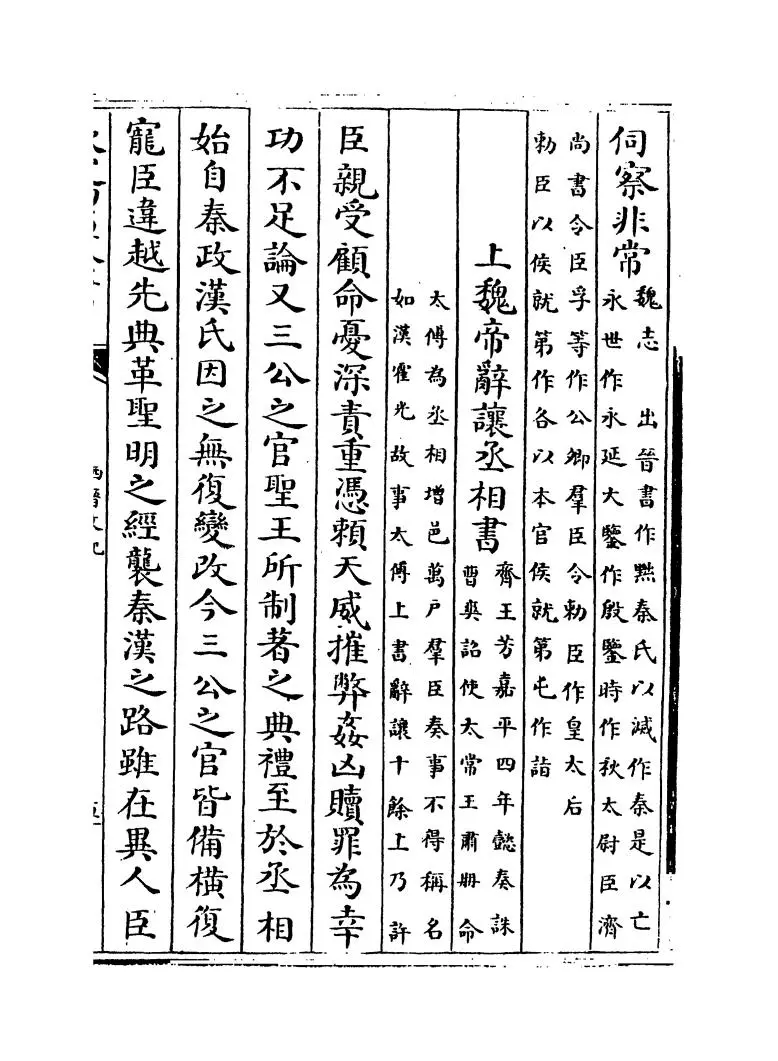 伺察非常魏志 出晉書作黙秦氏以滅作秦是以亡
永世作永延大鑒作殷鑒時作秋太尉臣濟
尚書令臣孚等作公卿羣臣令勅臣作皇太后
勅臣以侯就第作各以本官侯就第屯作詣
上魏帝辭讓丞相書齊王芳嘉平四年懿奏誅
曹爽詔使太常王肅册命
太傅為丞相增邑萬户羣臣奏事不得稱名
如漢霍光故事太傅上書辭讓十餘上乃許
臣親受顧命憂深責重憑賴天威摧弊姦凶贖罪為幸
功不足論又三公之官聖王所制著之典禮至於丞相
始自秦政漢氏因之無復變改今三公之官皆備橫復
寵臣違越先典革聖明之經襲秦漢之路雖在異人臣
西晉文紀